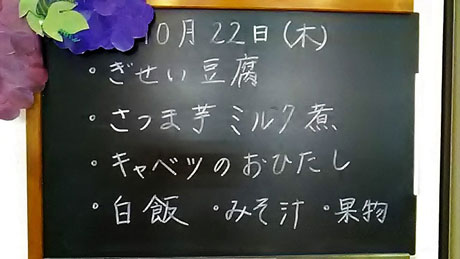 10月22日(木)
・ぎせい豆腐
・さつま芋ミルク煮
・キャベツのおひたし
・白飯 ・みそ汁 ・果物